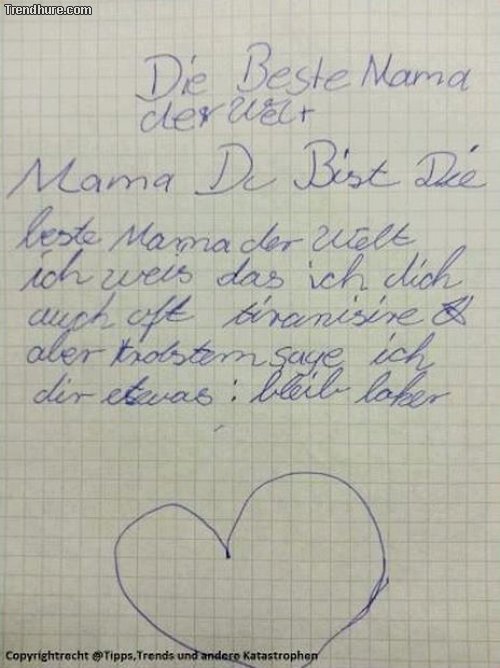 Trendhure.com
Die Beste Mama
der Welt
Mama Du Bist Die
beste Mama der Welt
ich weis das ich dich
auch oft tiranisire
aber trobstem sage ich
dir etwas: bleib loker
Copyrightrecht @Tipps,Trends und andere Katastrophen